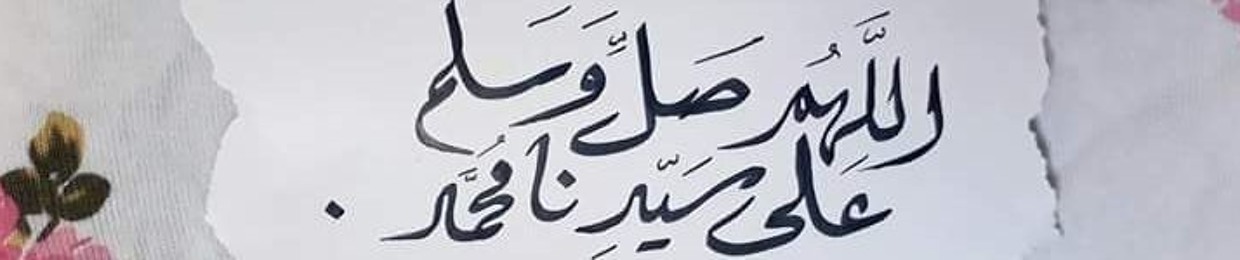 اللَّهُم صَلِّ وَسَلم
عَلى سَيِّدِنا مُحمَّد .